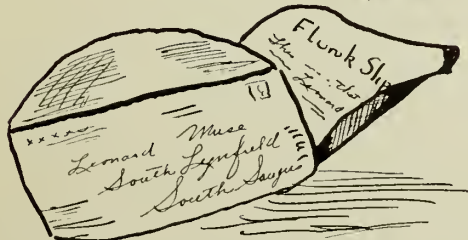 Flunk Slip
Leonard
Leonard Muse
South Lynnfield
South Saugus